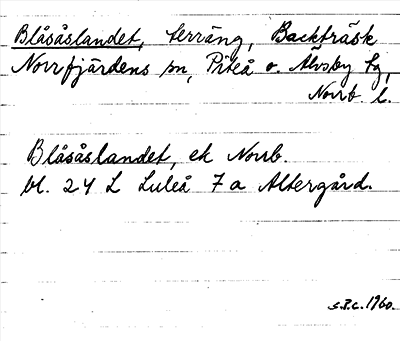 Blåsåslandet, terräng, Backträsk
Norrfjärdens sn, Piteå o. Älvsby tg,
Norrb l.
Blåsåslandet, ek Norrb.
bl. 24 L Luleå 7 a Altergård.
S.P.C. 1960.